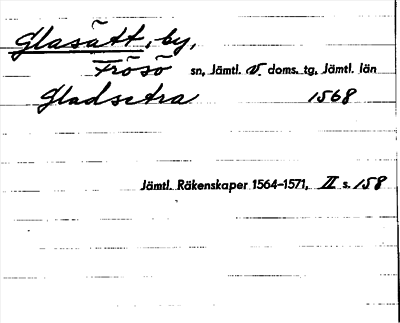 Glasätt, by,
Frösö sn, Jämtl. v. doms. tg, Jämtl. län
Gladsetra 1568
Jämtl. Räkenskaper 1564–1571, II s. 158